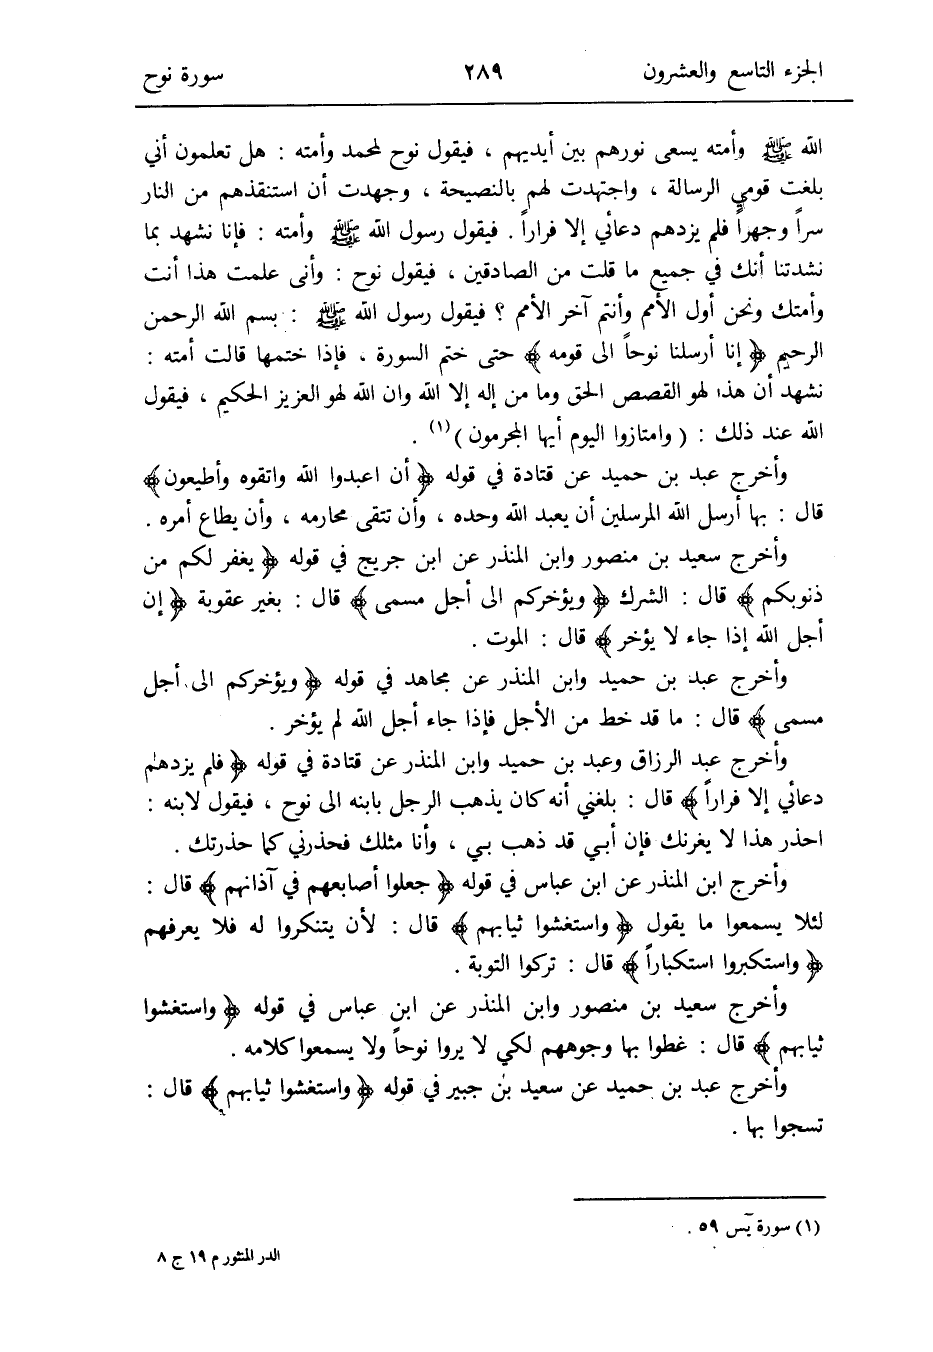 الجزء التاسع والعشرون ٢٨٩ سورة نوح
الله ﷺ وأمته يسعى نورهم بين أيديهم ، فيقول نوح لمحمد وأمته : هل تعلمون أني
بلغت قومي الرسالة ، واجتهدت لهم بالنصيحة ، وجهدت أن استنقذهم من النار
سراً وجهراً فلم يزدهم دعائي إلا فراراً . فيقول رسول الله ﷺ وأمته : فإنا نشهد بما
نشدتنا أنك في جميع ما قلت من الصادقين ، فيقول نوح : وأنى علمت هذا أنت
وأمتك ونحن أول الأمم وأنتم آخر الأمم ؟ فيقول رسول الله ﷺ : بسم الله الرحمن
الرحيم ﴿ إنا أرسلنا نوحاً الى قومه ﴾ حتى ختم السورة ، فإذا ختمها قالت أمته :
نشهد أن هذا لهو القصص الحق وما من إله إلا الله وان الله لهو العزيز الحكيم ، فيقول
الله عند ذلك : ( وامتازوا اليوم أيها المجرمون )(١) .
وأخرج عبد بن حميد عن قتادة في قوله ﴿ أن اعبدوا الله واتقوه وأطيعون ﴾
قال : بها أرسل الله المرسلين أن يعبد الله وحده ، وأن تتقى محارمه ، وأن يطاع أمره .
وأخرج سعيد بن منصور وابن المنذر عن ابن جريج في قوله ﴿ يغفر لكم من
ذنوبكم ﴾ قال : الشرك ﴿ ويؤخركم الى أجل مسمى ﴾ قال : بغير عقوبة ﴿ إن
أجل الله إذا جاء لا يؤخر ﴾ قال : الموت .
وأخرج عبد بن حميد وابن المنذر عن مجاهد في قوله ﴿ ويؤخركم الى أجل
مسمى ﴾ قال : ما قد خط من الأجل فإذا جاء أجل الله لم يؤخر .
وأخرج عبد الرزاق وعبد بن حميد وابن المنذر عن قتادة في قوله ﴿ فلم يزدهم
دعائي إلا فراراً ﴾ قال : بلغني أنه كان يذهب الرجل بابنه الى نوح ، فيقول لابنه :
احذر هذا لا يغرنك فإن أبي قد ذهب بي ، وأنا مثلك فحذرني كما حذرتك .
وأخرج ابن المنذر عن ابن عباس في قوله ﴿ جعلوا أصابعهم في آذانهم ﴾ قال :
لئلا يسمعوا ما يقول ﴿ واستغشوا ثيابهم ﴾ قال : لأن يتنكروا له فلا يعرفهم
﴿ واستكبروا استكباراً ﴾ قال : تركوا التوبة .
وأخرج سعيد بن منصور وابن المنذر عن ابن عباس في قوله ﴿ واستغشوا
ثيابهم ﴾ قال : غطوا بها وجوههم لكي لا يروا نوحاً ولا يسمعوا كلامه .
وأخرج عبد بن حميد عن سعيد بن جبير في قوله ﴿ واستغشوا ثيابهم ﴾ قال :
تسجوا بها .
(١) سورة يۤس ٥٩ .
الدر المنثور م ١٩ ج ٨